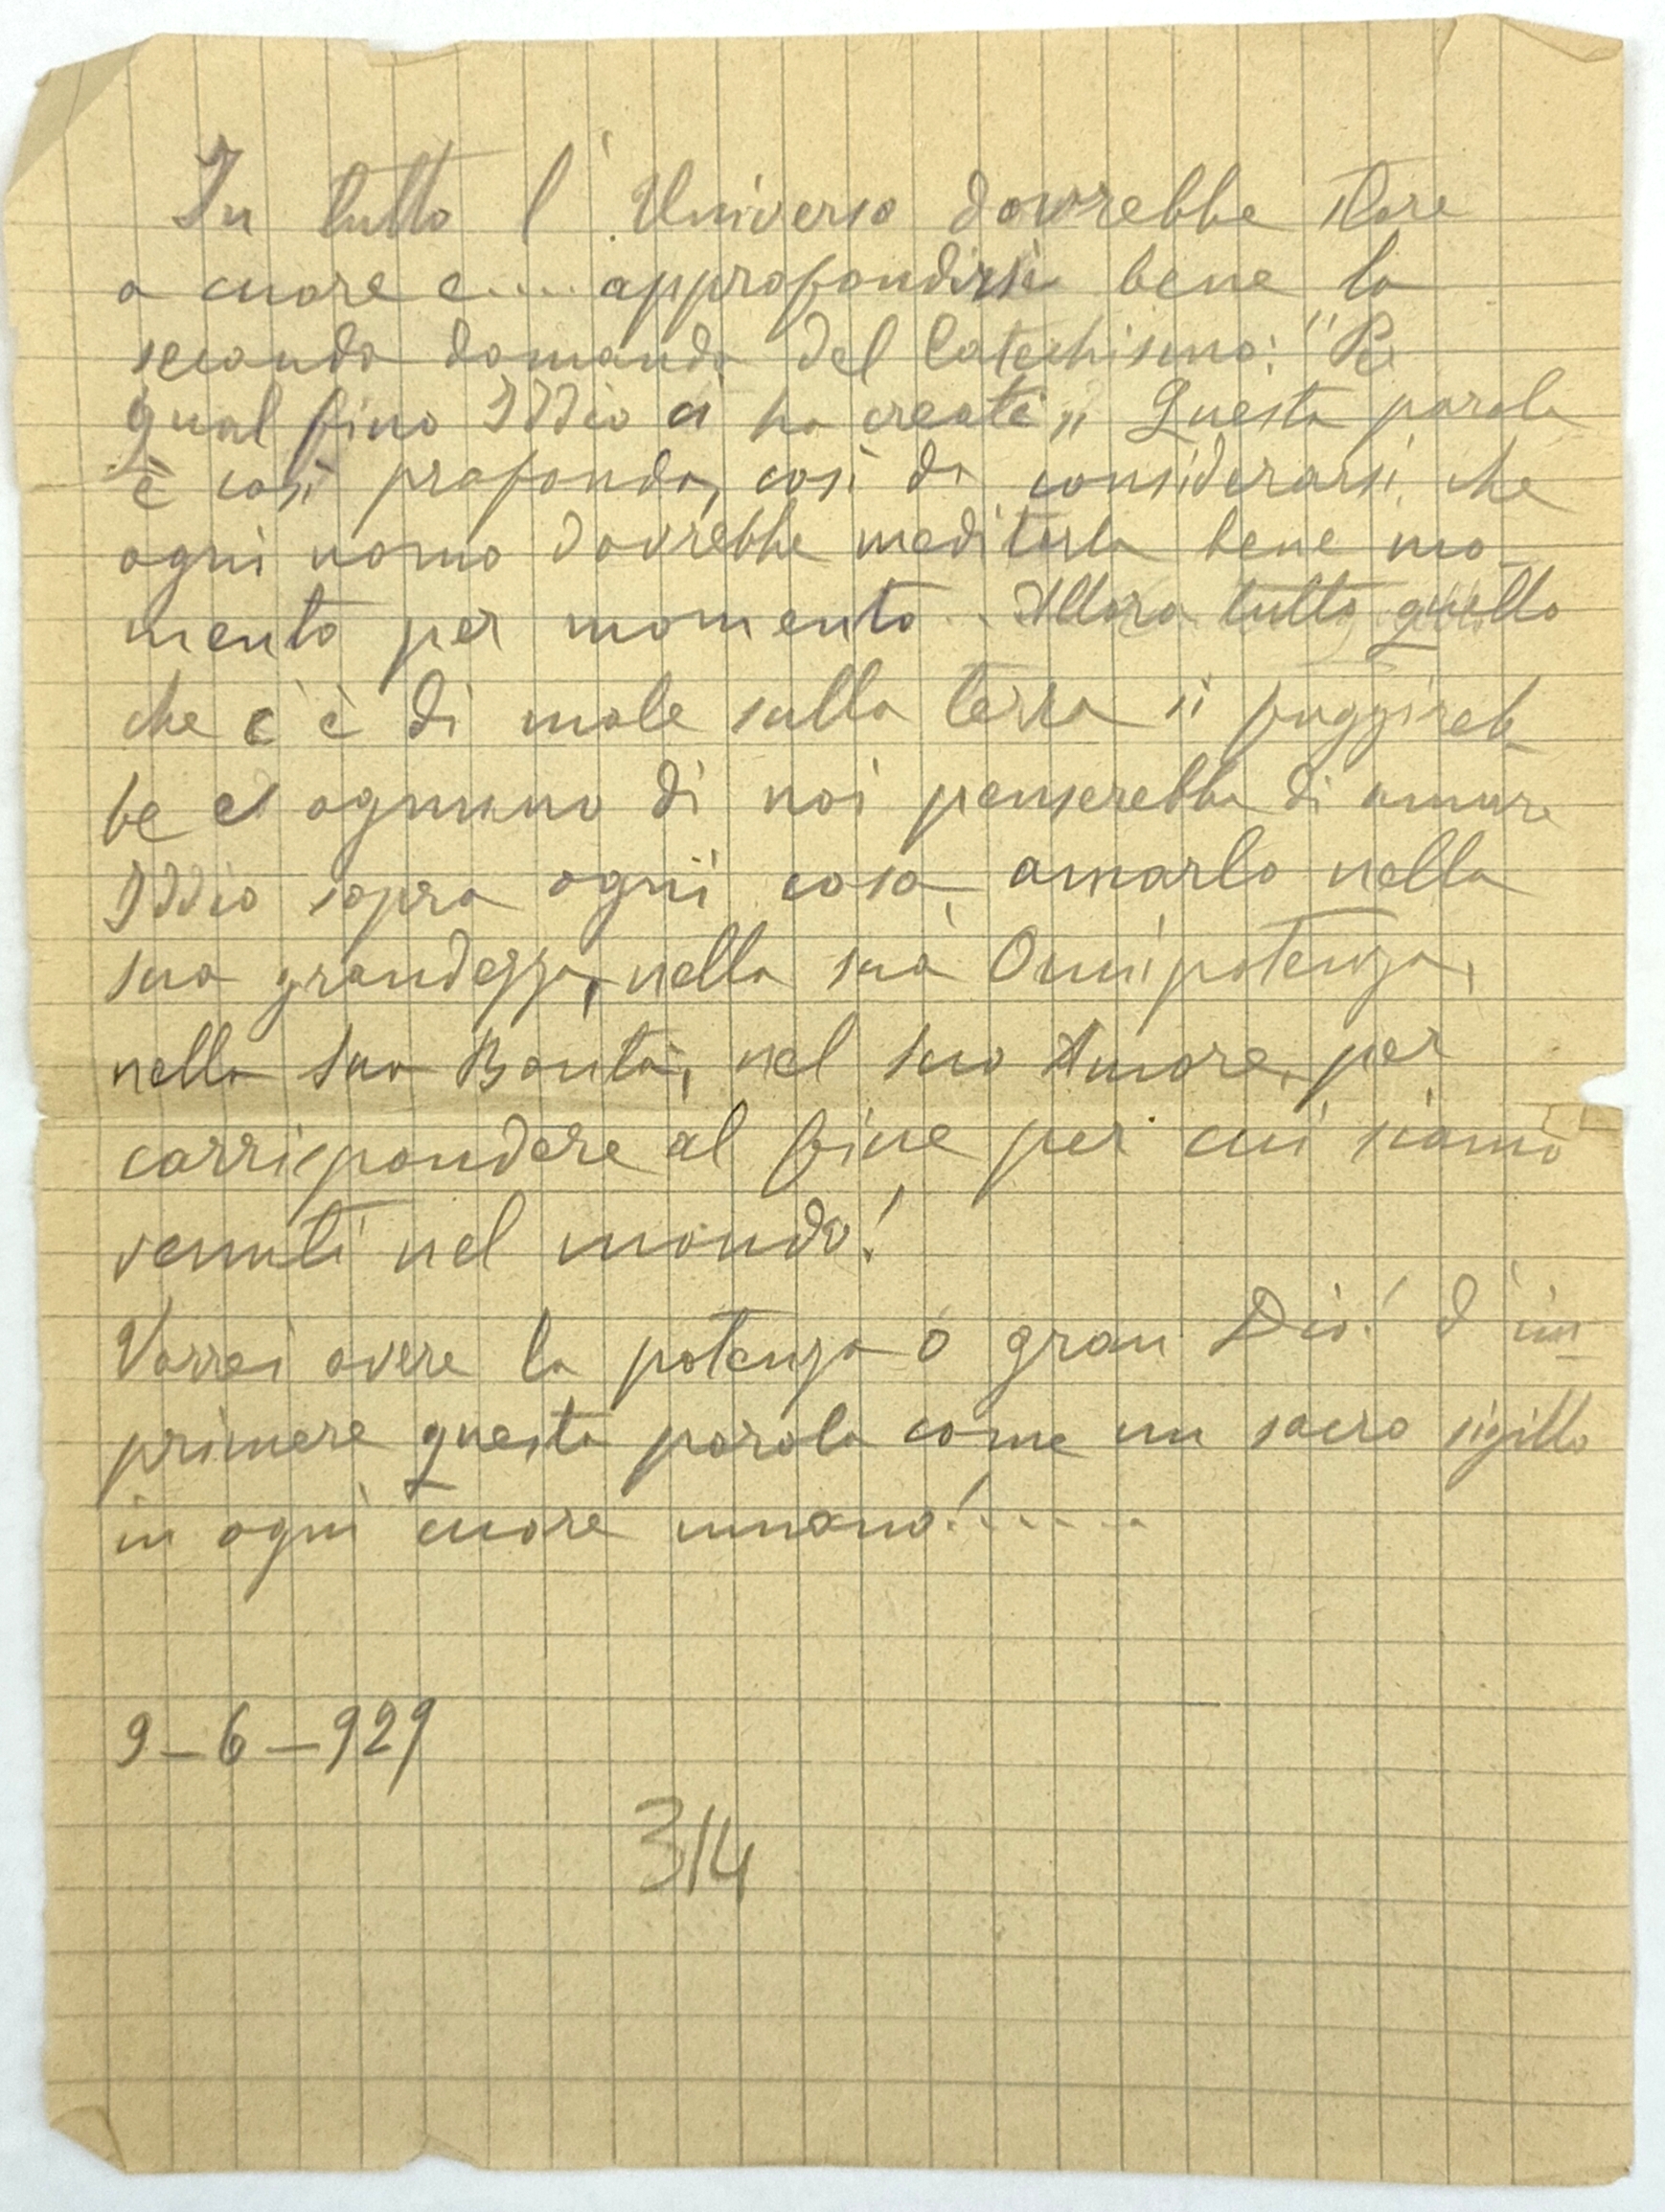 In tutto l'Universo dovrebbe stare
a cuore e.... approfondirsi bene la
seconda domanda del Catechismo: "Per
qual fine Iddio ci ha creati„ Questa parola
è così profonda, così da considerarsi che
ogni uomo dovrebbe meditarla bene mo_
mento per momento.. Allora tutto quello
che c'è di male sulla terra si fuggireb_
be ed ognuno di noi penserebbe di amare
Iddio sopra ogni cosa, amarlo nella
sua grandezza, nella sua Onnipotenza,
nella sua Bontà, nel suo Amore, per
corrispondere al fine per cui siamo
venuti nel mondo!
Vorrei avere la potenza o gran Dio! d'im_
primere questa parola come un sacro sigillo
in ogni cuore umano!......
9-6-929
314